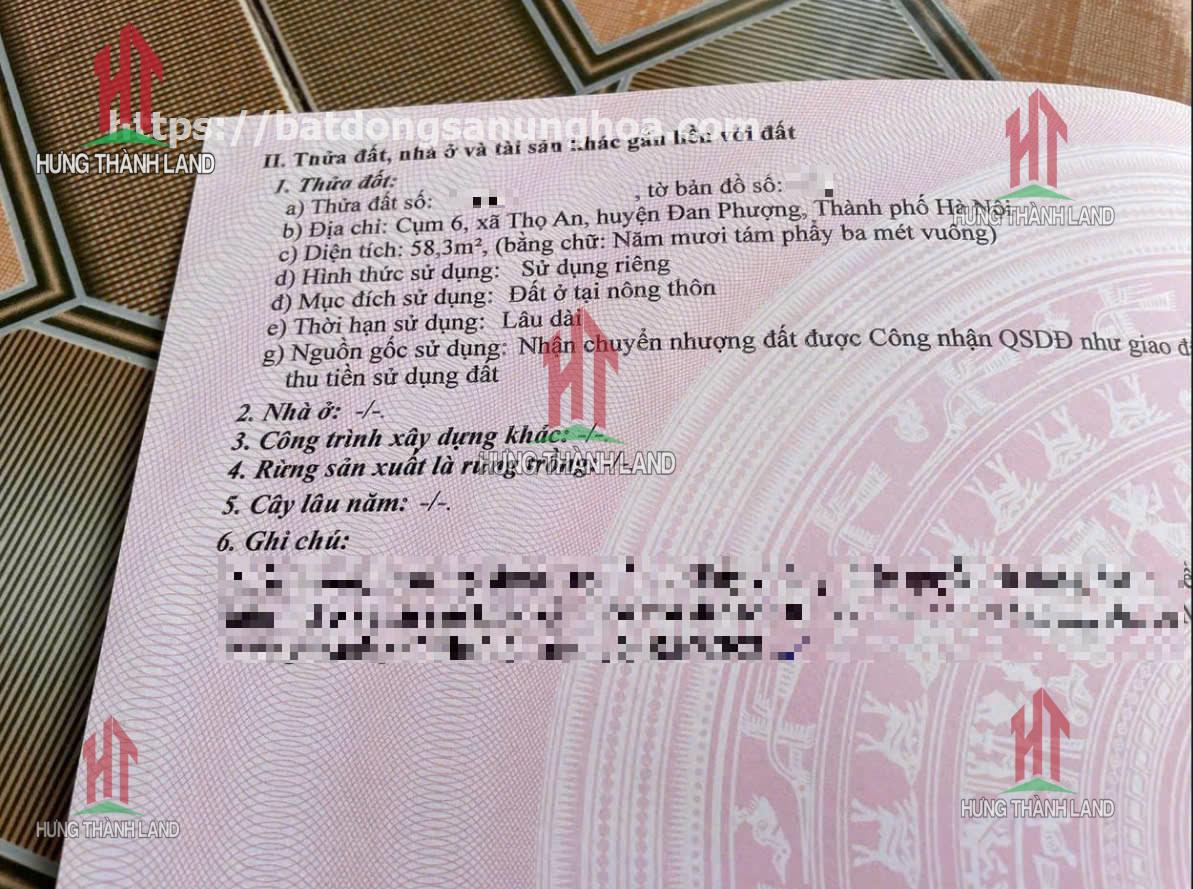 https://batdongsanunghoa.com
HƯNG THÀNH LAND
II. Thửa đất, nhà ở và tài sản khác gắn liền với đất
1. Thửa đất:
a) Thửa đất số: , tờ bản đồ số:
b) Địa chỉ: Cụm 6, xã Thọ An, huyện Đan Phượng, Thành phố Hà Nội
HƯNG THÀNH LAND
c) Diện tích: 58,3m², (bằng chữ: Năm mươi tám phẩy ba mét vuông)
d) Hình thức sử dụng: Sử dụng riêng
đ) Mục đích sử dụng: Đất ở tại nông thôn
e) Thời hạn sử dụng: Lâu dài
g) Nguồn gốc sử dụng: Nhận chuyển nhượng đất được Công nhận QSDĐ như giao
thu tiền sử dụng đất
2. Nhà ở: -/-.
3. Công trình xây dựng khác: -/-.
4. Rừng sản xuất là rừng trồng: -/-.
HƯNG THÀNH LAND
5. Cây lâu năm: -/-.
6. Ghi chú:
HƯNG THÀNH LAND
HƯNG THÀNH LAND